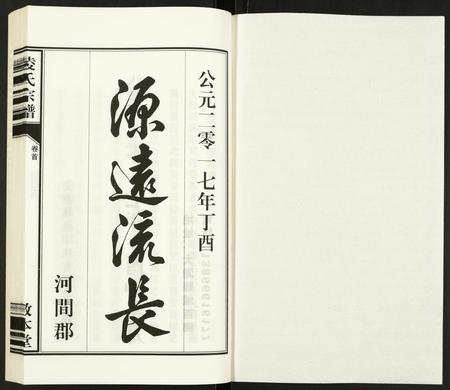 公元二零一七年丁酉
源遠流長
河間郡
淩氏宗譜
卷首
敦本堂